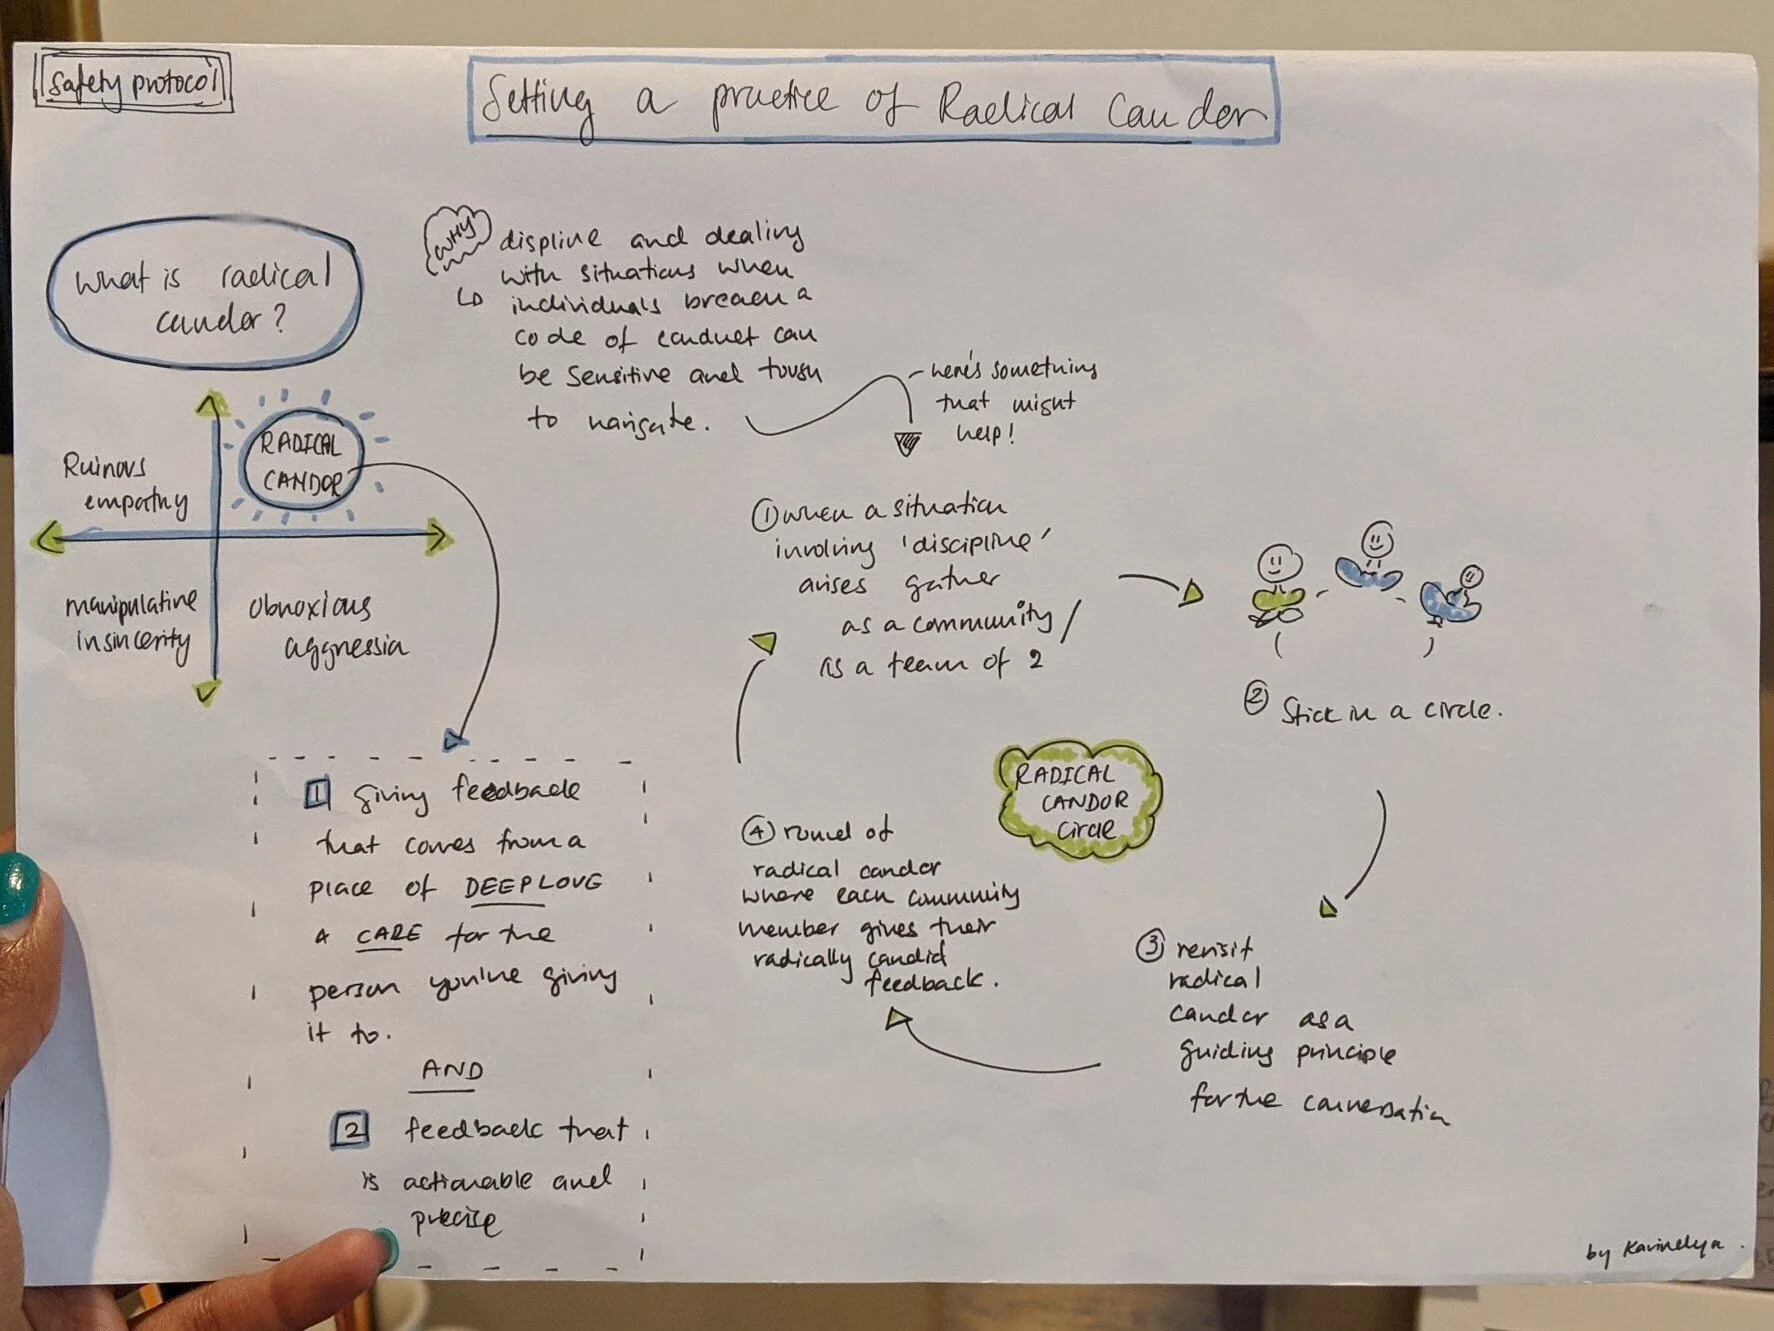 Safety protocol
Setting a practice of Radical Candor
What is radical
candor?
RADICAL
CANDOR
Ruinous
empathy
manipulative
insincerity
obnoxious
aggressia
WHY
displine and dealing
with situations when
individuals breach a
code of conduct can
be sensitive and tough
to navigate.
here's something
that might
help!
1 giving feedback
that comes from a
place of DEEP LOVE
& CARE for the
person you're giving
it to.
AND
2 feedback that
is actionable and
precise
① when a situation
involving 'discipline'
arises gather
as a community/
as a team of 2
② Stick in a circle.
RADICAL
CANDOR
Circle
③ revisit
radical
candor as a
guiding principle
for the conversation
④ round of
radical candor
where each community
member gives their
radically candid
feedback.
by